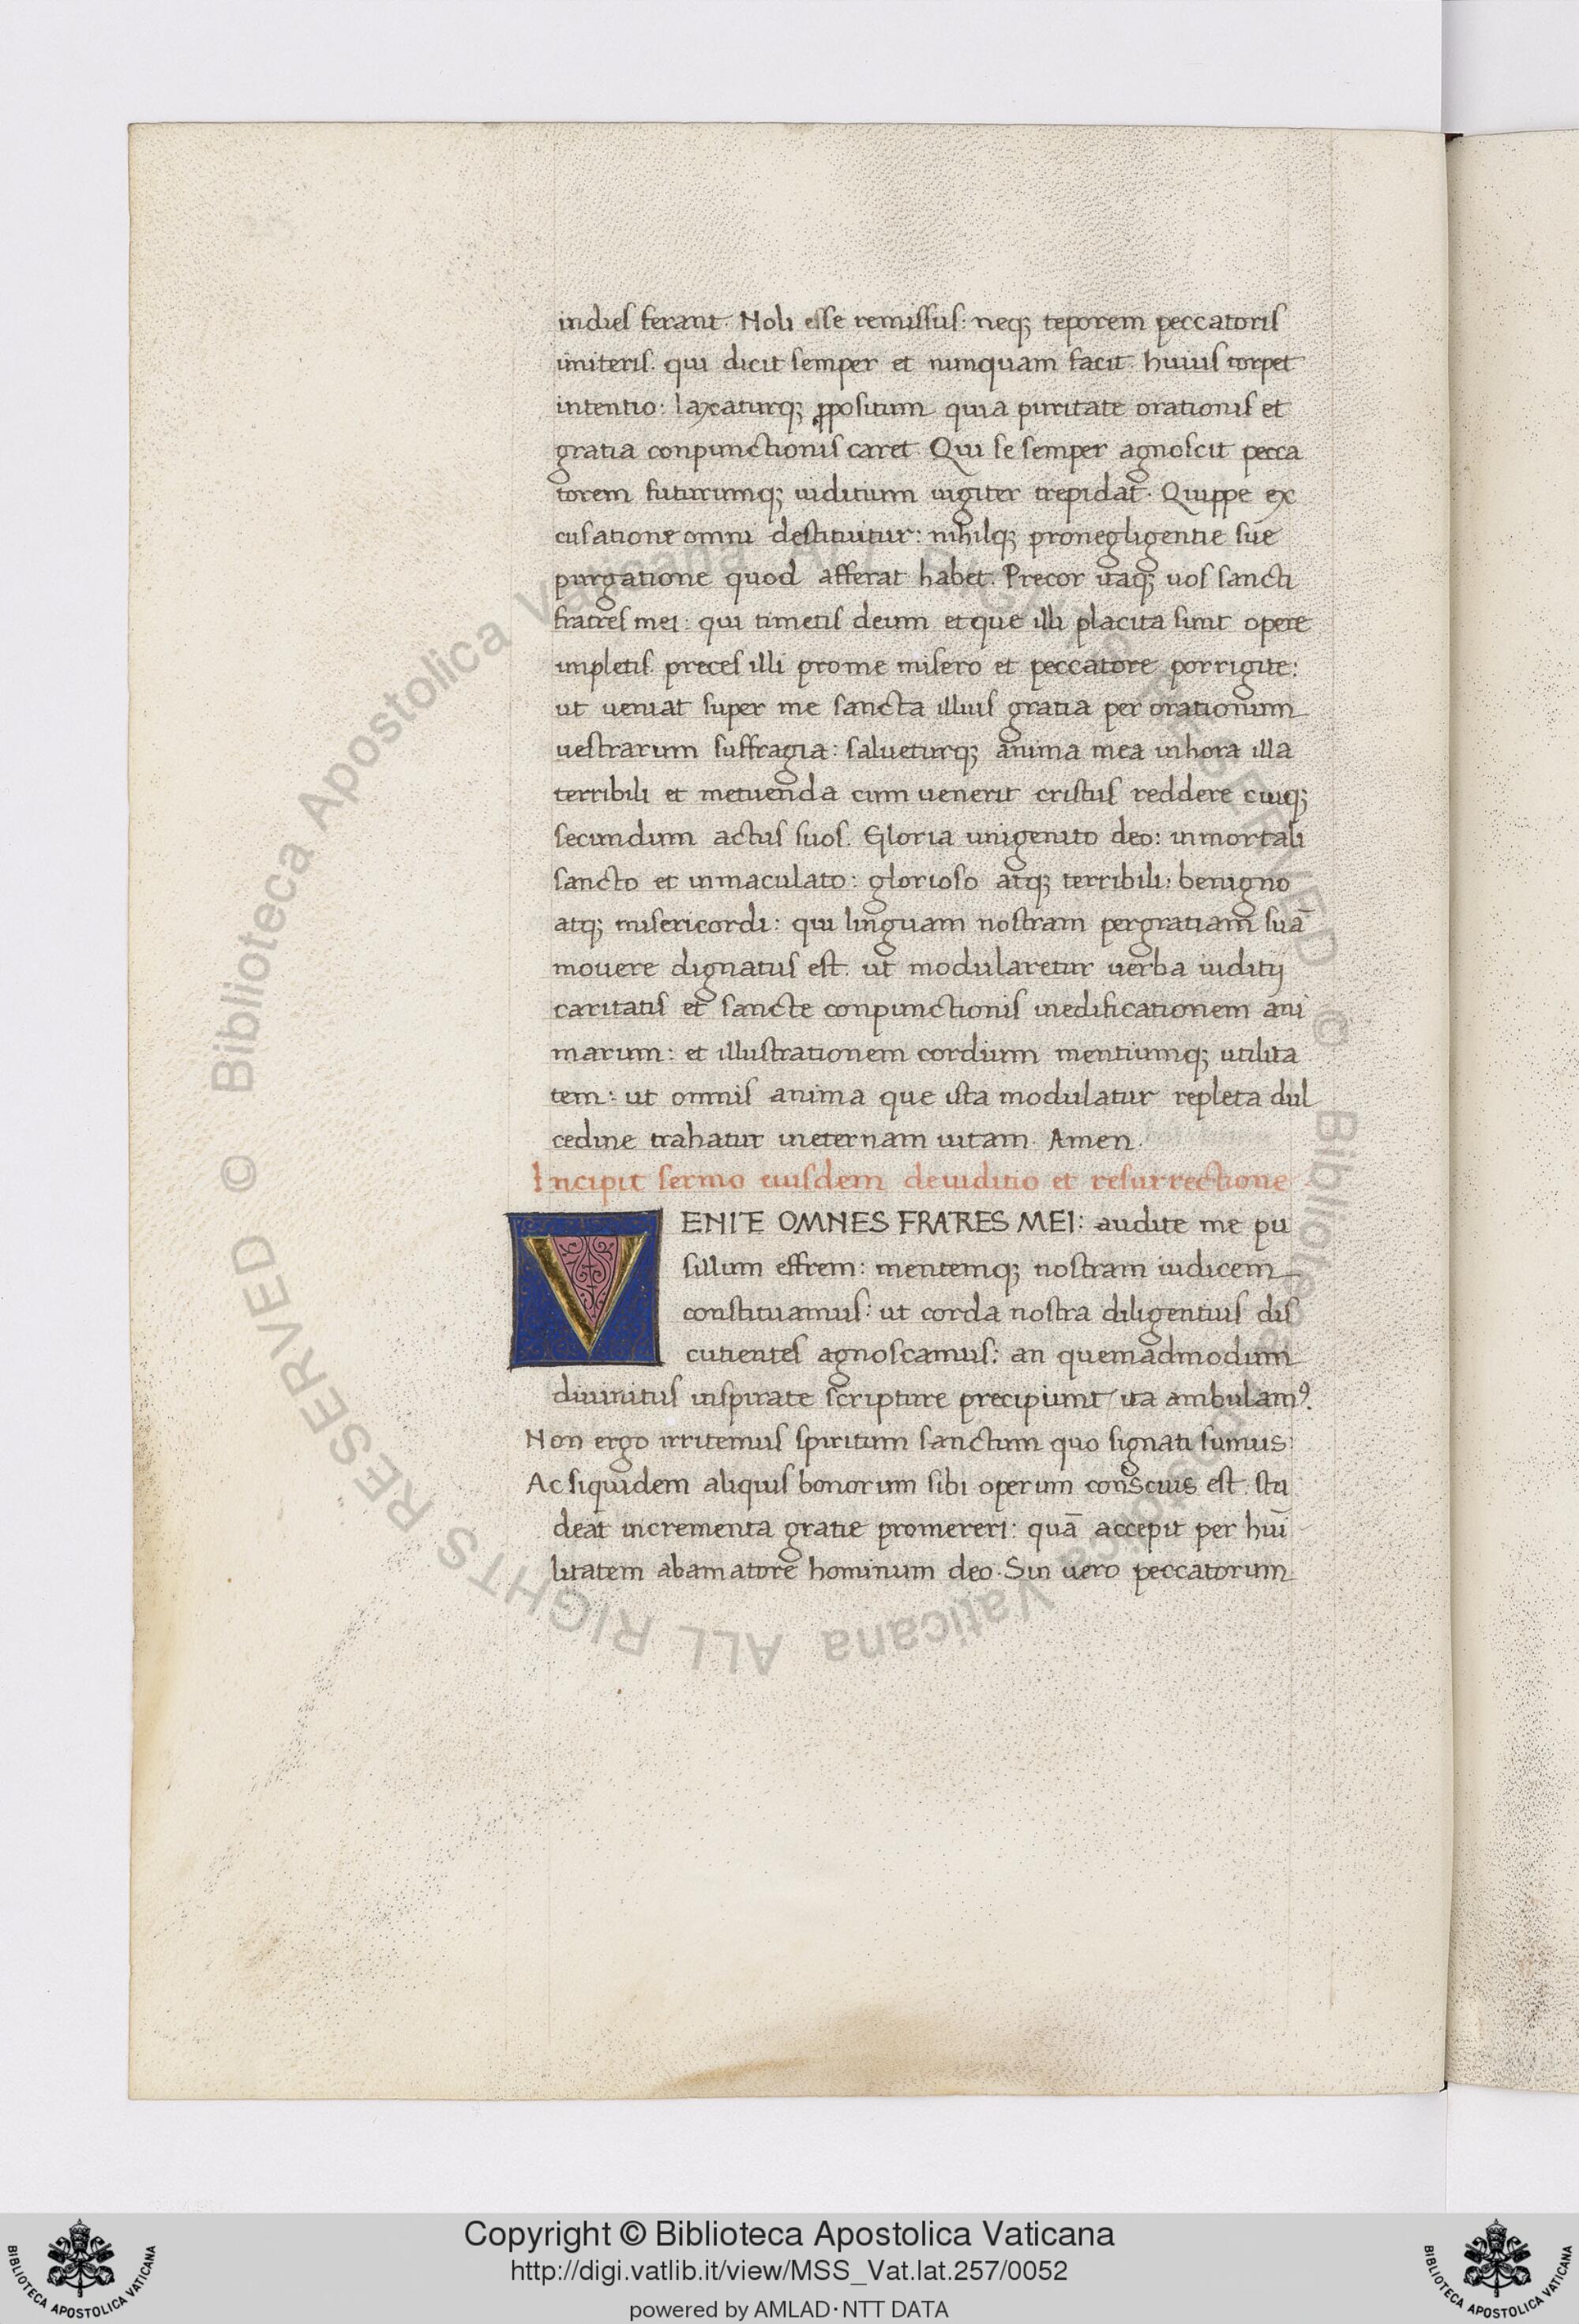 indies ferant. Noli esse remissus: neq; teporem peccatoris
imiteris. qui dicit semper et nunquam facit. huius torpet
intentio: laxaturq; ꝓpositum quia puritate orationis et
gratia conpunctionis caret. Qui se semper agnoscit pecca
torem futurumq; iuditium iugiter trepidat. Quippe ex
cusatione omni destituitur: nihilq; pronegligentie sue
purgatione quod afferat habet. Precor itaq; uos sancti
fratres mei: qui timetis deum et que illi placita sunt opere
impletis. preces illi pro me misero et peccatore porrigite:
ut ueniat super me sancta illius gratia per orationum
uestrarum suffragia: salueturq; anima mea inhora illa
terribili et metuenda cum uenerit cristus reddere cuiq;
secundum actus suos. Gloria unigenito deo: inmortali
sancto et inmaculato: glorioso atq; terribili: benigno
atq; misericordi: qui linguam nostram pergratiam suā
mouere dignatus est. ut modularetur uerba iuditij
caritatis et sancte conpunctionis inedificationem ani
marum: et illustrationem cordium mentiumq; utilita
tem: ut omnis anima que ista modulatur repleta dul
cedine trahatur ineternam uitam. Amen.
Incipit sermo eiusdem deiuditio et resurrectione
VENITE OMNES FRATRES MEI: audite me pu
sillum effrem: mentemq; nostram iudicem
constituamus: ut corda nostra diligentius dis
cutientes agnoscamus: an quemadmodum
diuinitus inspirate scripture precipiunt/ ita ambulamꝰ.
Non ergo irritemus spiritum sanctum quo signati sumus:
Ac siquidem aliquis bonorum sibi operum conscius est. stu
deat incrementa gratie promereri: quā accepit per hūi
litatem abamatore hominum deo. Sin uero peccatorum
© Biblioteca Apostolica Vaticana ALL RIGHTS RESERVED © Biblioteca Apostolica Vaticana ALL RIGHTS RESERVED
Copyright © Biblioteca Apostolica Vaticana
http://digi.vatlib.it/view/MSS_Vat.lat.257/0052
powered by AMLAD·NTT DATA
BIBLIOTECA APOSTOLICA VATICANA
BIBLIOTECA APOSTOLICA VATICANA